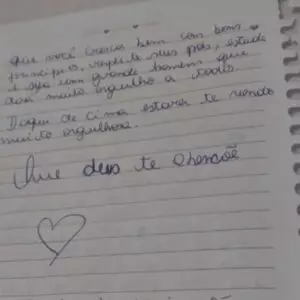 que você cresça bem com bons
principios, respeite seus pais, estude
e seja um grande homem que
dará muito orgulho a todos.
Daqui de cima estarei te vendo
muito orgulhosa.
Que deus te abençõe